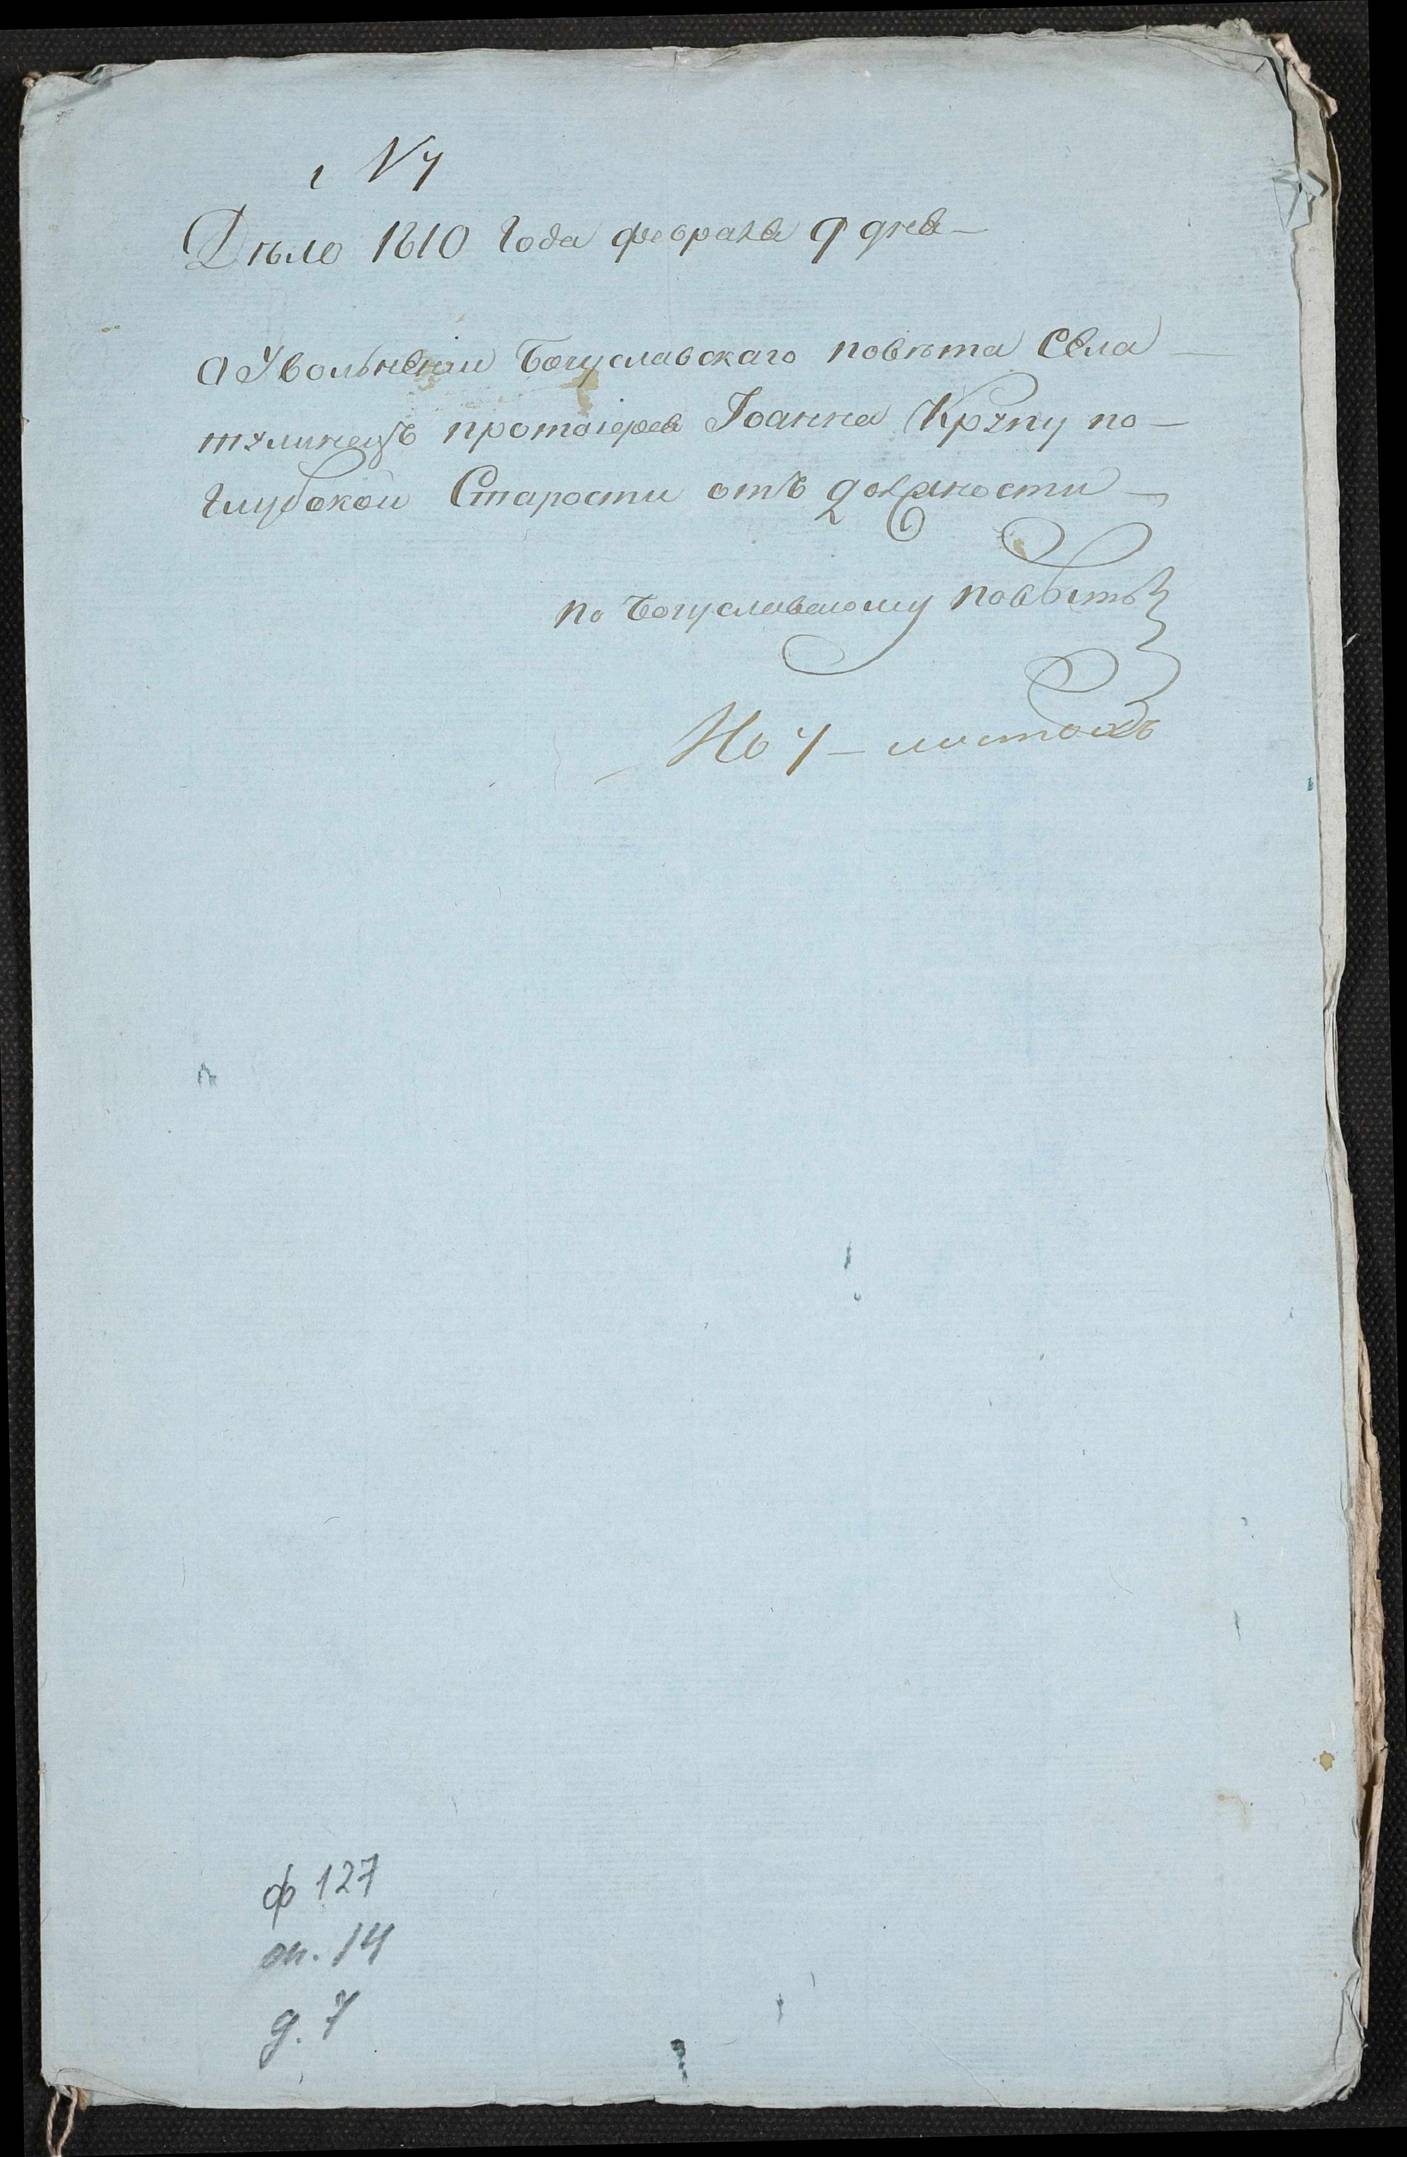 N 7
Дѣло 1810 года февраля 9 дня —
О Увольненіи Богуславскаго повѣта Села —
тулинецъ протоіерея Іоанна Крупу по —
глубокой Старости отъ должности —
по Богуславскому повѣтѣ
На 7 — листахъ
ф 127
оп. 14
д. 7